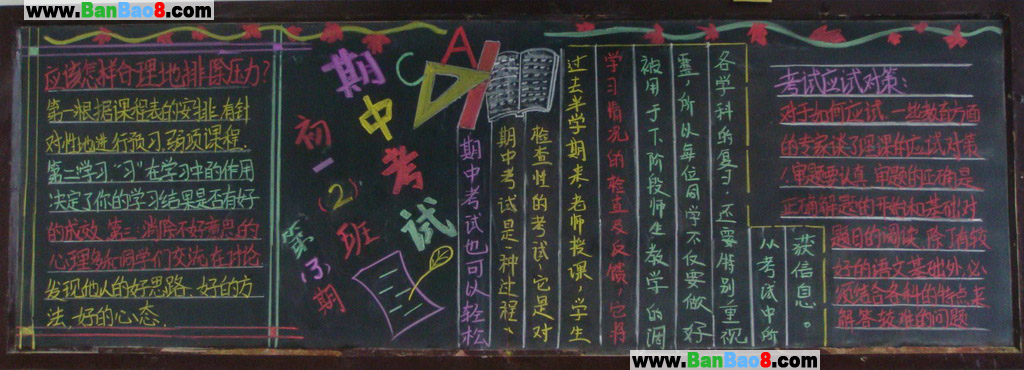 www.BanBao8.com
www.BanBao8.com
应该怎样合理地排除压力?
第一根据课程表的安排,有针
对性地进行预习,弱项课程.
第二学习“习”在学习中的作用
决定了你的学习结果是否有好
的成效.第三:消除不好意思的
心理多和同学们交流,在讨论
发现他人的好思路、好的方
法.好的心态.
期中考试
初一(2)班
第(3)期
期中考试也可以轻松
期中考试是一种过程、
检查性的考试、它是对
过去半学期来,老师授课,学生
学习情况的检查及反馈,它将
被用于下阶段师生教学的调
整,所以每位同学不仅要做好
各学科的复习.还要特别重视
从考试中所
获信息。
考试应试对策:
对于如何应试,一些教育方面
的专家谈了理课的应试对策
审题要认真,审题的正确是
正确解题的开始和基础对
题目的阅读,除了有较
好的语文基础外,必
须结合各科的特点来
解答较难的问题
www.BanBao8.com